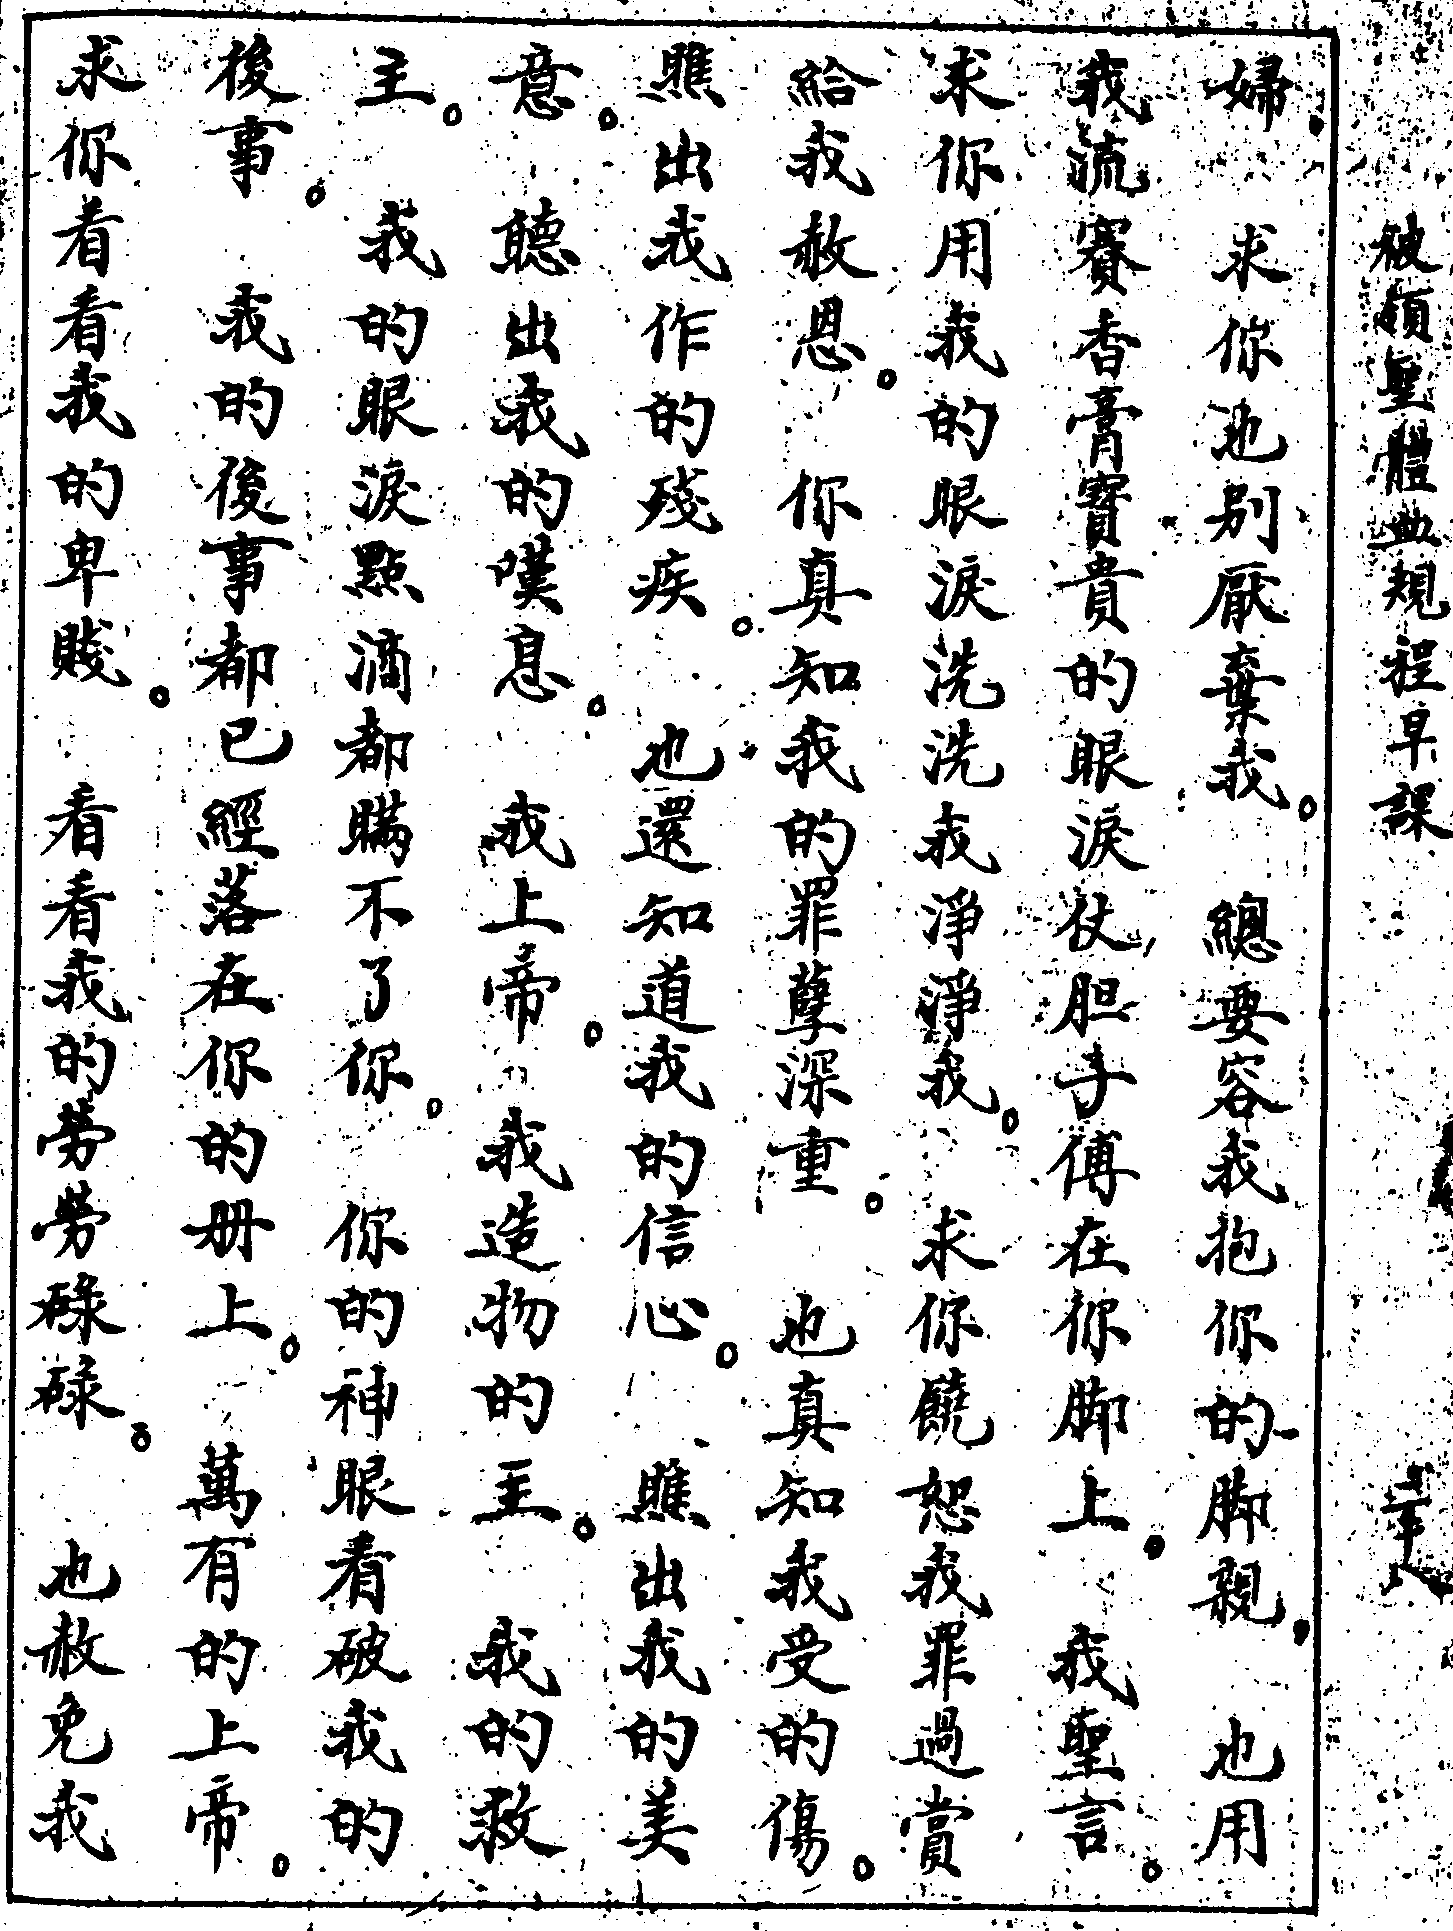 被領聖體血規程早課
婦。求你也别厭棄我。總要容我抱你的脚親。也用
我流賽香膏寶貴的眼淚仗胆子傅在你脚上。我聖言。
求你用我的眼淚洗洗我淨淨我。求你饒恕我罪過賞
給我赦恩。你真知我的罪孽深重。也真知我受的傷。
瞧出我作的殘疾。也還知道我的信心。瞧出我的美
意。聽出我的嘆息。我上帝。我造物的主。我的救
主。我的眼淚點滴都瞞不了你。你的神眼看破我的
後事。我的後事都已經落在你的册上。萬有的上帝。
求你看看我的卑賤。看看我的勞勞碌碌。也赦免我